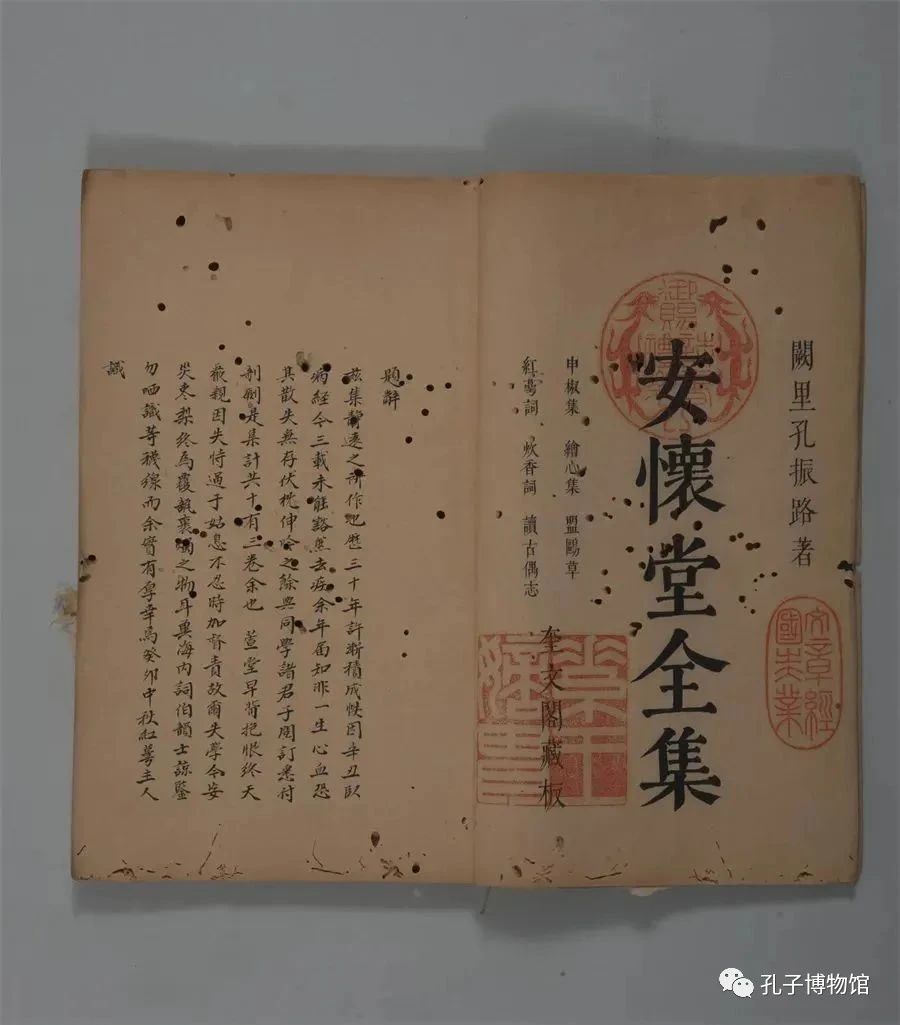 闕里孔振路著
文章經國大業
安懷堂全集
申椒集 繪心集 盟鷗草
紅萼詞 炊香詞 讀古偶志
奎文閣藏板
題辭
茲集靜遠之所作也歷三十年許漸積成帙因辛丑臥
病經今三載未能豁然去疾余年屆知非一生心血恐
其散失無存伏枕伸吟之餘與同學諸君子閱訂悉付
剞劂是集計共十有三卷余也 萱堂早背抱恨終天
嚴親因失恃過于姑息不忍時加督責故爾失學今妄
災枣梨終為覆瓿裹之物耳冀海内詞伯韻士諒鑒
勿哂識等襪線而余實有厚幸焉癸卯中秋紅萼主人
識
孔子博物馆